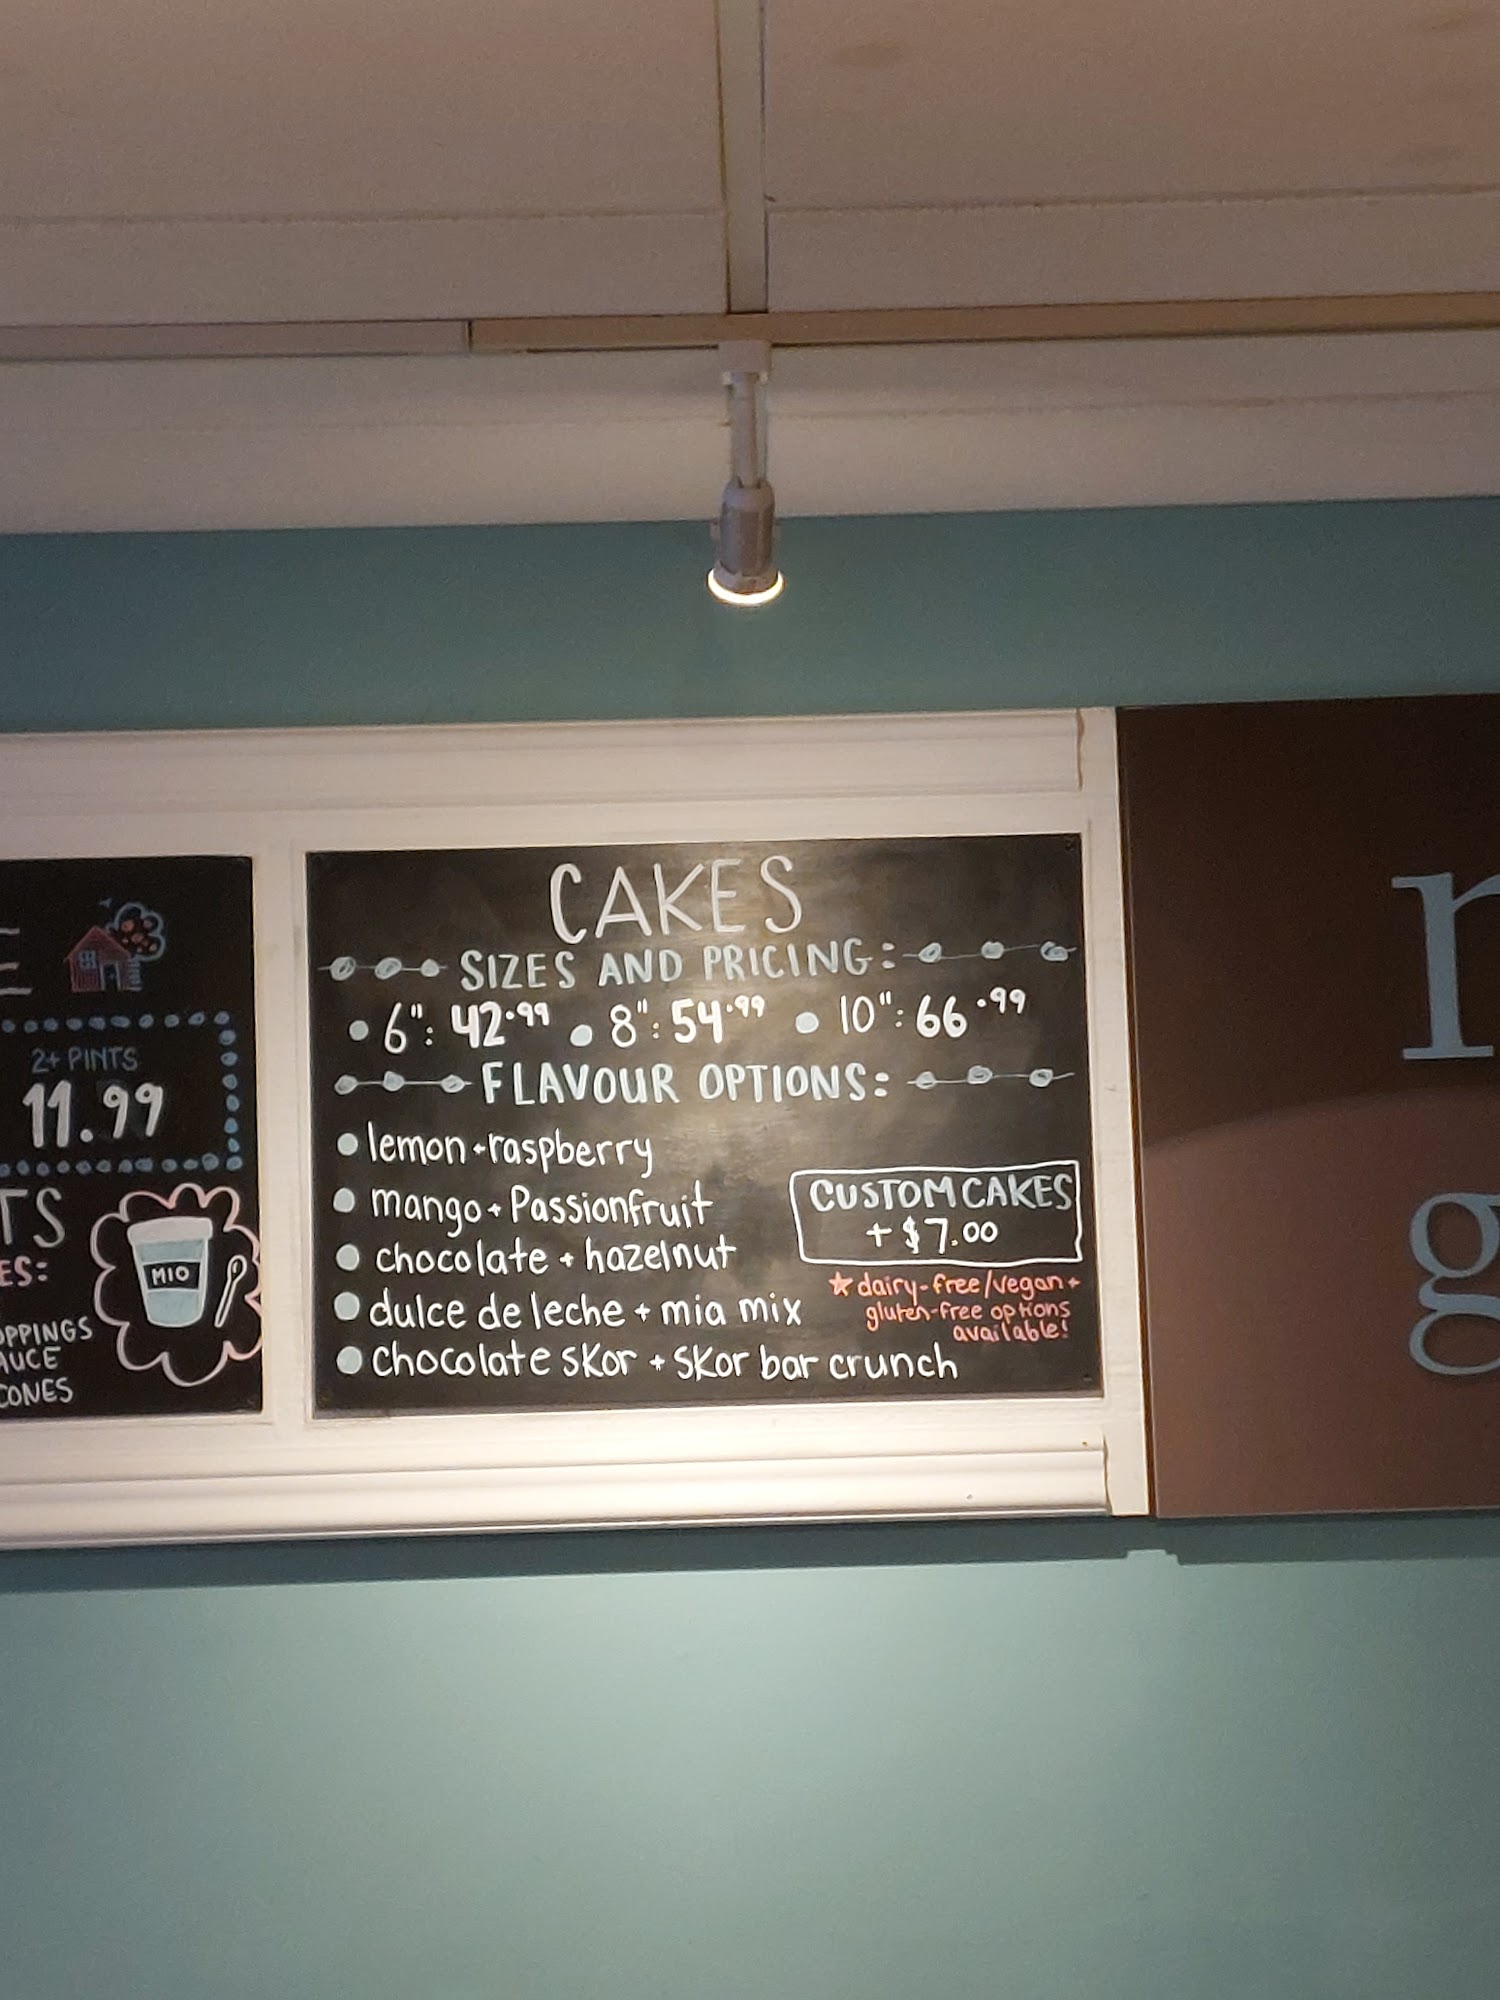 2+ PINTS
11.99
MIO
CONES
CAKES
SIZES AND PRICING:
• 6": 42.99 • 8": 54.99 • 10": 66.99
FLAVOUR OPTIONS:
• lemon + raspberry
• mango + Passionfruit
• chocolate + hazelnut
• dulce de leche + mia mix
• chocolate skor + skor bar crunch
CUSTOM CAKES
+ $7.00
★ dairy-free/vegan +
gluten-free options
available!
g